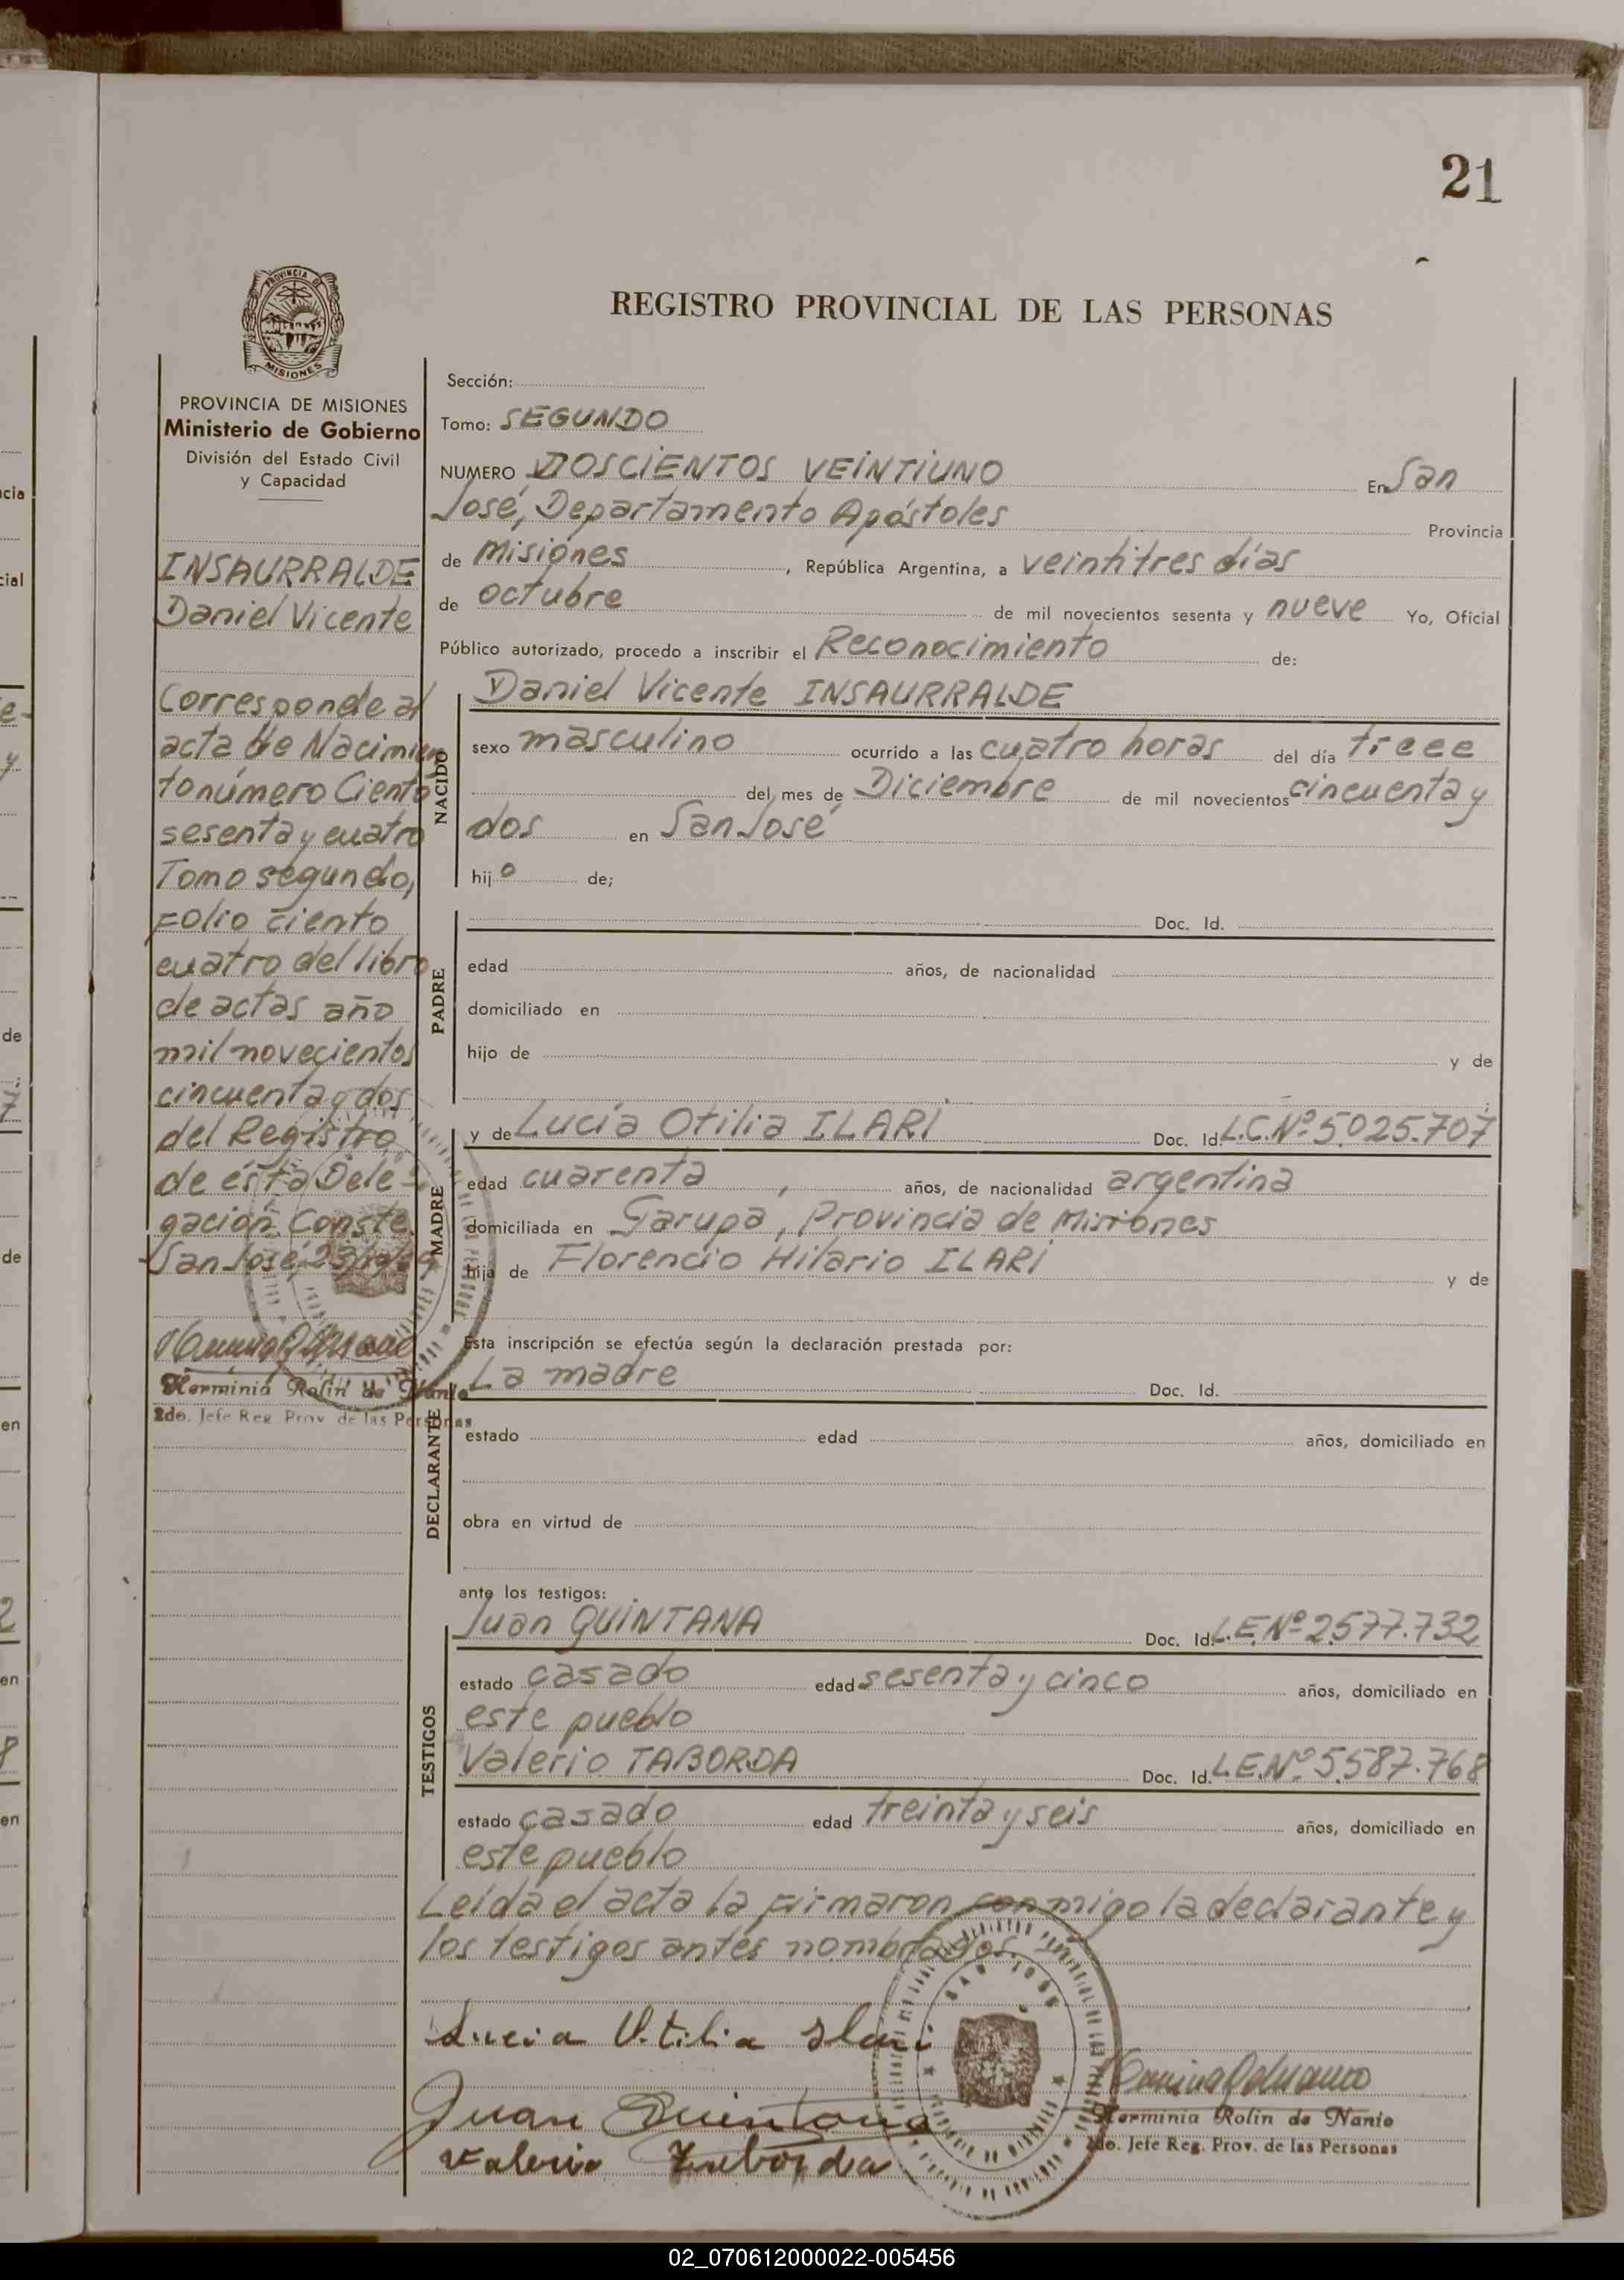 21
PROVINCIA DE
MISIONES
REGISTRO PROVINCIAL DE LAS PERSONAS
PROVINCIA DE MISIONES
Ministerio de Gobierno
División del Estado Civil
y Capacidad
INSAURRALDE
Daniel Vicente
Corresponde al
acta de Nacimien
to número Ciento
sesenta y cuatro
Tomo segundo,
Folio ciento
cuatro del libro
de actas año
mil novecientos
cincuenta y dos
del Registro
de ésta Dele-
gación Conste.
San José, 23/10/69
Herminia Rolin de Nanio
2do. Jefe Reg. Prov. de las Personas
Sección:
Tomo: SEGUNDO
NUMERO DOSCIENTOS VEINTIUNO En San
José, Departamento Apóstoles Provincia
de Misiones, República Argentina, a veintitres días
de octubre de mil novecientos sesenta y nueve Yo, Oficial
Público autorizado, procedo a inscribir el Reconocimiento de:
NACIDO
Daniel Vicente INSAURRALDE
sexo masculino ocurrido a las cuatro horas del día treee
del mes de Diciembre de mil novecientos cincuenta y
dos en San José
hijo de;
PADRE
Doc. Id.
edad años, de nacionalidad
domiciliado en
hijo de y de
MADRE
y de Lucía Otilia ILARI Doc. Id. L.C.Nº 5.025.707
edad cuarenta años, de nacionalidad argentina
domiciliada en Garupa, Provincia de Misiones
hija de Florencio Hilario ILARI y de
Esta inscripción se efectúa según la declaración prestada por:
DECLARANTE
La madre Doc. Id.
estado edad años, domiciliado en
obra en virtud de
ante los testigos:
TESTIGOS
Juan QUINTANA Doc. Id. L.E.Nº 2577.732
estado casado edad sesenta y cinco años, domiciliado en
este pueblo
Valerio TABORDA Doc. Id. L.E.Nº 5.587.768
estado casado edad treinta y seis años, domiciliado en
este pueblo
Leída el acta la firmaron conmigo la declarante y
los testigos antes nombrados.
Lucia Otilia Ilari
Juan Quintana
Valerio Taborda
Herminia Rolin de Nanio
2do. Jefe Reg. Prov. de las Personas
02_070612000022-005456